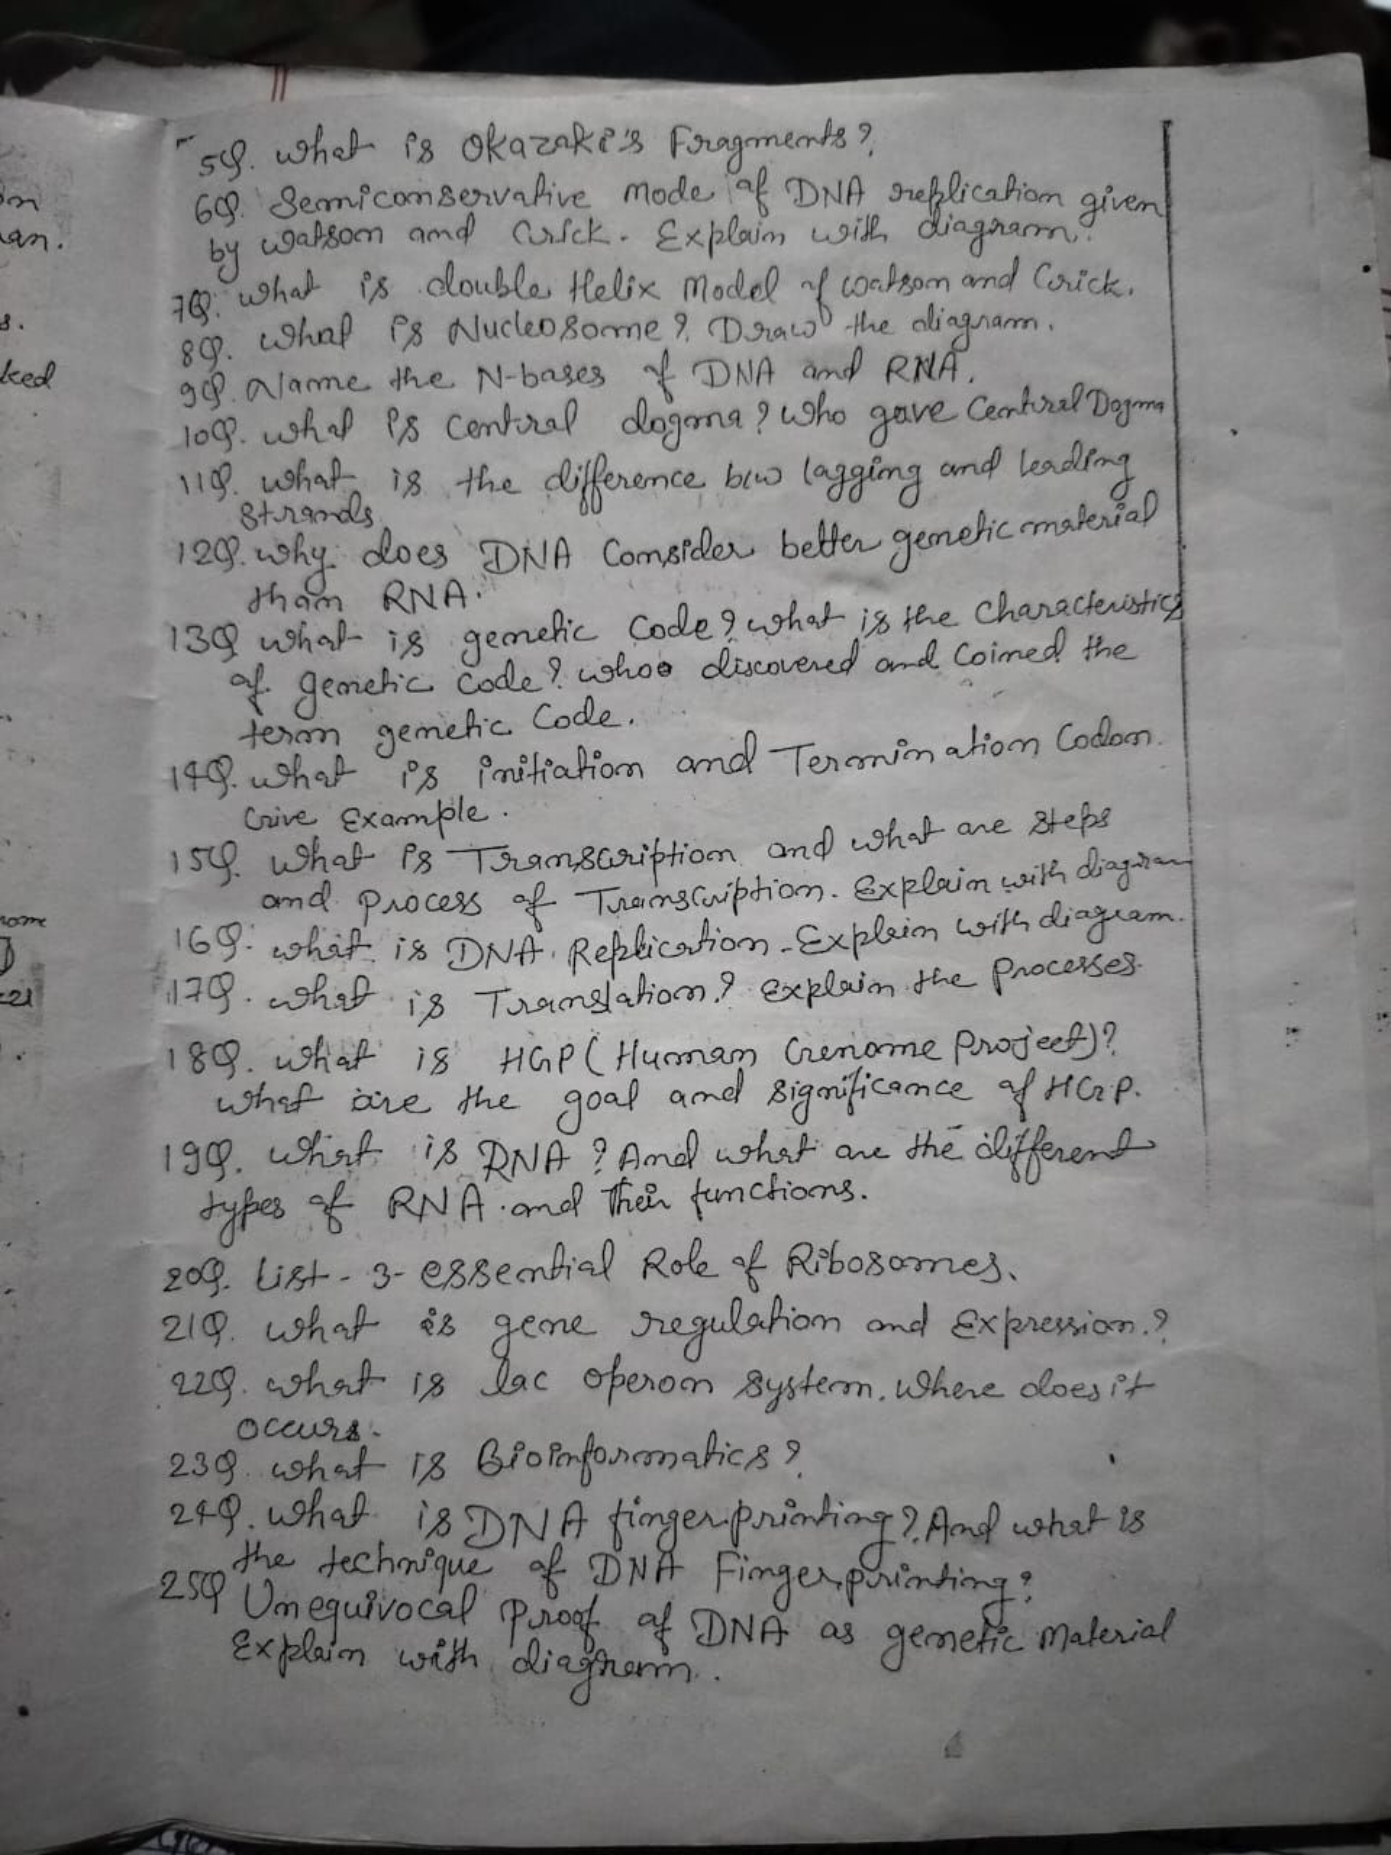 on
an.
s.
ked
nome
5Q. What is Okazaki's Fragments?
6Q. Semiconservative mode of DNA replication given
by Watson and Crick. Explain with diagram.
7Q. What is double Helix Model of Watson and Crick.
8Q. What is Nucleosome? Draw the diagram.
9Q. Name the N-bases of DNA and RNA.
10Q. What is central dogma? Who gave Central Dogma
11Q. What is the difference b/w lagging and leading
strands
12Q. Why does DNA Consider better genetic material
than RNA.
13Q What is genetic Code? What is the Characteristics
of genetic Code? Whoo discovered and Coined the
term genetic Code.
14Q. What is initiation and Termination Codon.
Give Example.
15Q. What is Transcription and what are steps
and Process of Transcription. Explain with diagram
16Q. What is DNA Replication - Explain with diagram.
17Q. What is Translation? Explain the Processes.
18Q. What is HGP (Human Genome Project)?
What are the goal and significance of HGP.
19Q. What is RNA? And what are the different
types of RNA and their functions.
20Q. List - 3 - essential Role of Ribosomes.
21Q. What is gene regulation and Expression.?
22Q. What is lac operon system. Where does it
occurs.
23Q. What is Bioinformatics?
24Q. What is DNA fingerprinting? And what is
the technique of DNA Fingerprinting?
25Q Unequivocal Proof of DNA as genetic Material
Explain with diagram.